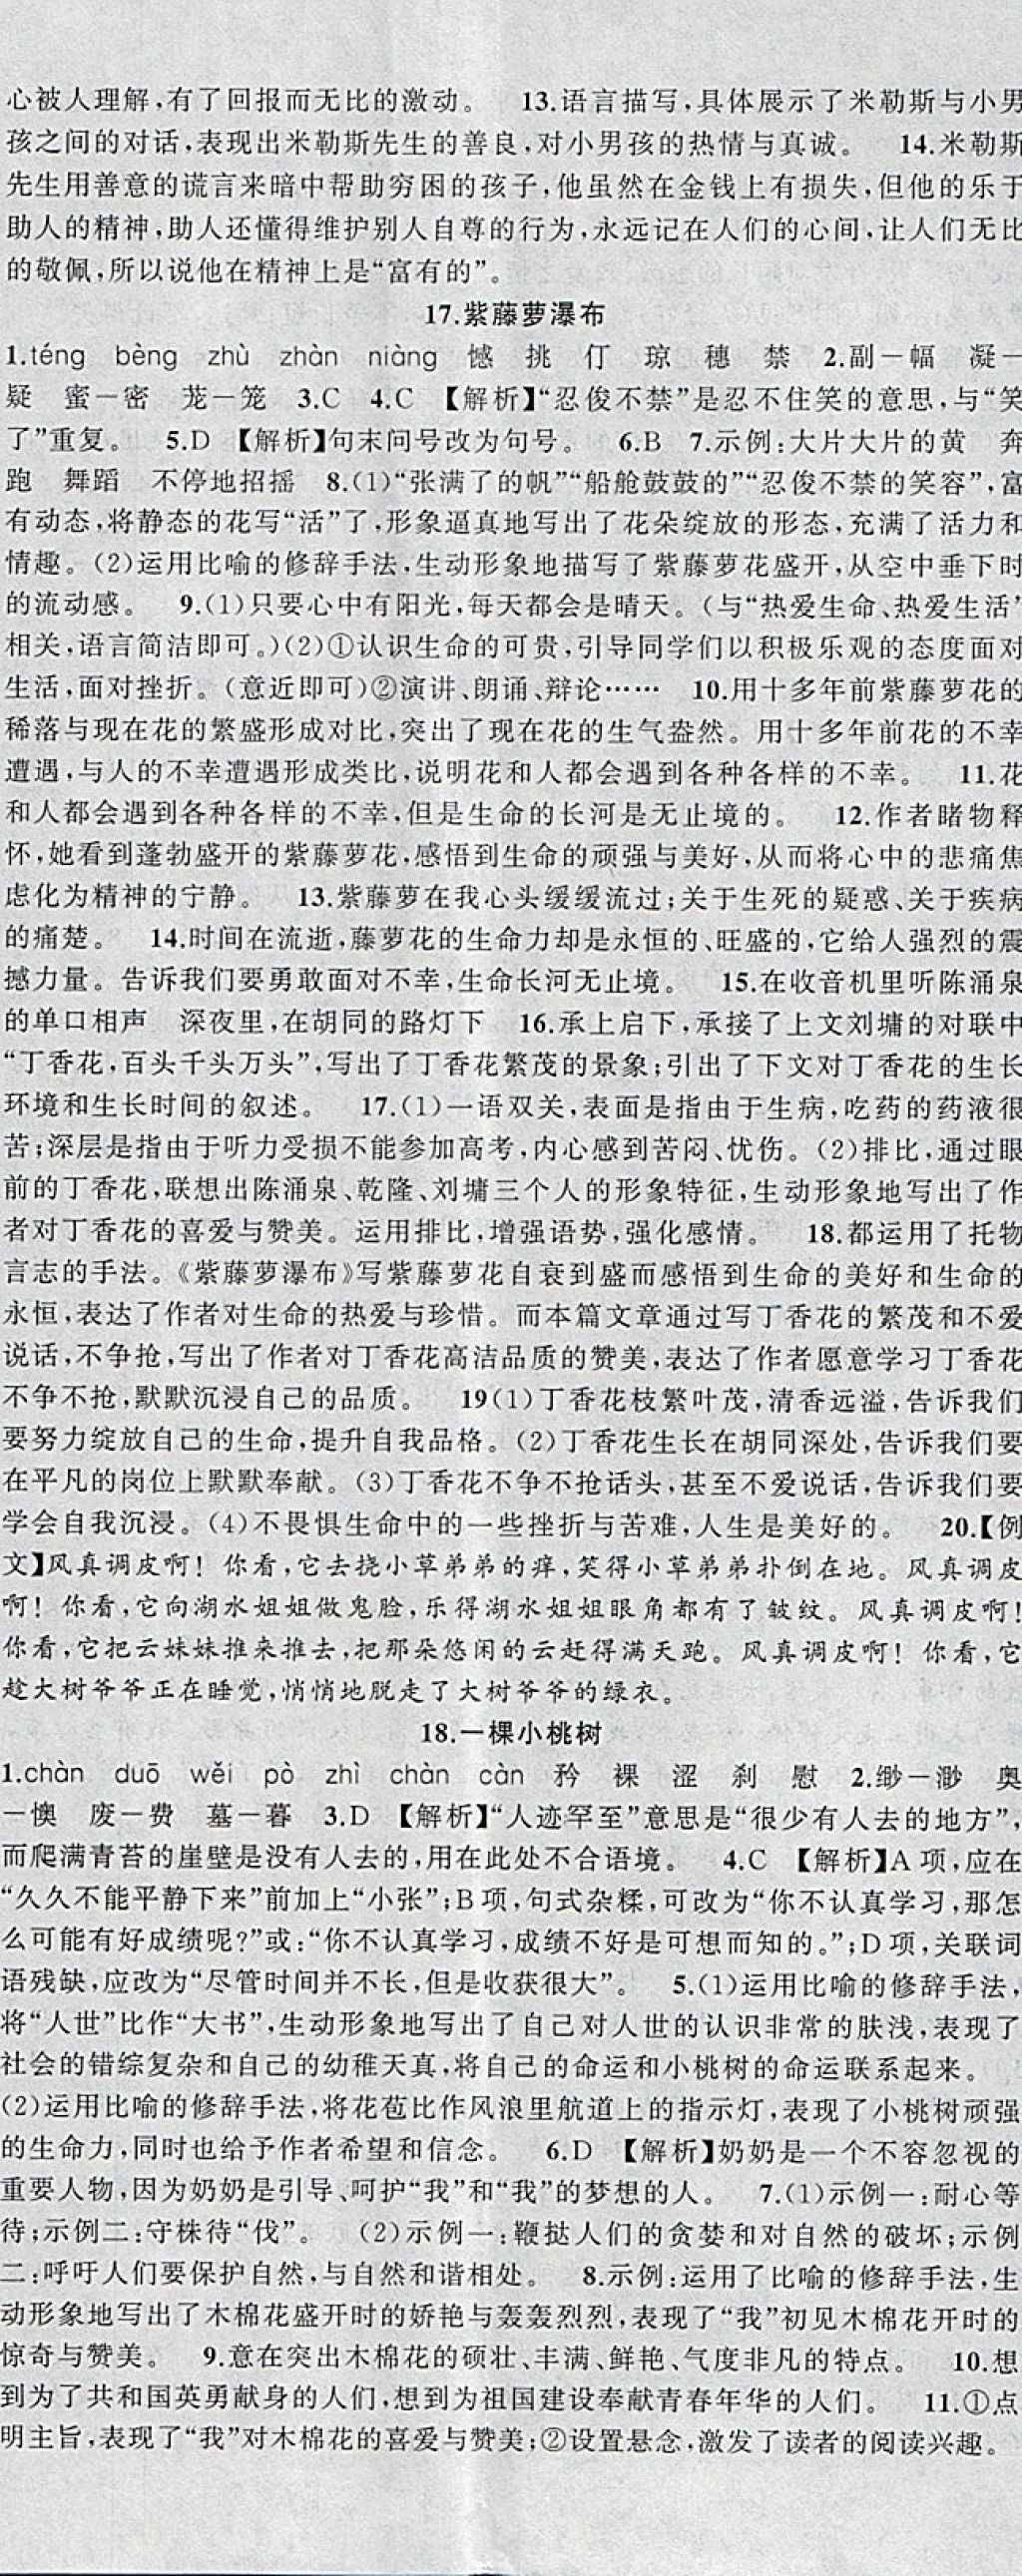 心被人理解,有了回报而无比的激动。 13.语言描写,具体展示了米勒斯与小男
孩之间的对话,表现出米勒斯先生的善良,对小男孩的热情与真诚。 14.米勒斯
先生用善意的谎言来暗中帮助穷困的孩子,他虽然在金钱上有损失,但他的乐于
助人的精神,助人还懂得维护别人自尊的行为,永远记在人们的心间,让人们无比
的敬佩,所以说他在精神上是“富有的”。
17.紫藤萝瀑布
1.téng bèng zhù zhàn niàng 憾 挑 仃 琼 穗 禁 2.副—幅 凝—
疑 蜜—密 茏—笼 3.C 4.C 【解析】“忍俊不禁”是忍不住笑的意思,与“笑
了”重复。 5.D 【解析】句末问号改为句号。 6.B 7.示例:大片大片的黄 奔
跑 舞蹈 不停地招摇 8.(1)“张满了的帆”“船舱鼓鼓的”“忍俊不禁的笑容”,富
有动态,将静态的花写“活”了,形象逼真地写出了花朵绽放的形态,充满了活力和
情趣。(2)运用比喻的修辞手法,生动形象地描写了紫藤萝花盛开,从空中垂下时
的流动感。 9.(1)只要心中有阳光,每天都会是晴天。(与“热爱生命、热爱生活”
相关,语言简洁即可。)(2)①认识生命的可贵,引导同学们以积极乐观的态度面对
生活,面对挫折。(意近即可)②演讲、朗诵、辩论…… 10.用十多年前紫藤萝花的
稀落与现在花的繁盛形成对比,突出了现在花的生气盎然。用十多年前花的不幸
遭遇,与人的不幸遭遇形成类比,说明花和人都会遇到各种各样的不幸。 11.花
和人都会遇到各种各样的不幸,但是生命的长河是无止境的。 12.作者睹物释
怀,她看到蓬勃盛开的紫藤萝花,感悟到生命的顽强与美好,从而将心中的悲痛焦
虑化为精神的宁静。 13.紫藤萝在我心头缓缓流过;关于生死的疑惑、关于疾病
的痛楚。 14.时间在流逝,藤萝花的生命力却是永恒的、旺盛的,它给人强烈的震
撼力量。告诉我们要勇敢面对不幸,生命长河无止境。 15.在收音机里听陈涌泉
的单口相声 深夜里,在胡同的路灯下 16.承上启下,承接了上文刘墉的对联中
“丁香花,百头千头万头”,写出了丁香花繁茂的景象;引出了下文对丁香花的生长
环境和生长时间的叙述。 17.(1)一语双关,表面是指由于生病,吃药的药液很
苦;深层是指由于听力受损不能参加高考,内心感到苦闷、忧伤。(2)排比,通过眼
前的丁香花,联想出陈涌泉、乾隆、刘墉三个人的形象特征,生动形象地写出了作
者对丁香花的喜爱与赞美。运用排比,增强语势,强化感情。 18.都运用了托物
言志的手法。《紫藤萝瀑布》写紫藤萝花自衰到盛而感悟到生命的美好和生命的
永恒,表达了作者对生命的热爱与珍惜。而本篇文章通过写丁香花的繁茂和不爱
说话,不争抢,写出了作者对丁香花高洁品质的赞美,表达了作者愿意学习丁香花
不争不抢,默默沉浸自己的品质。 19(1)丁香花枝繁叶茂,清香远溢,告诉我们
要努力绽放自己的生命,提升自我品格。(2)丁香花生长在胡同深处,告诉我们要
在平凡的岗位上默默奉献。(3)丁香花不争不抢话头,甚至不爱说话,告诉我们要
学会自我沉浸。(4)不畏惧生命中的一些挫折与苦难,人生是美好的。 20.【例
文】风真调皮啊! 你看,它去挠小草弟弟的痒,笑得小草弟弟扑倒在地。风真调皮
啊! 你看,它向湖水姐姐做鬼脸,乐得湖水姐姐眼角都有了皱纹。风真调皮啊!
你看,它把云妹妹推来推去,把那朵悠闲的云赶得满天跑。风真调皮啊! 你看,它
趁大树爷爷正在睡觉,悄悄地脱走了大树爷爷的绿衣。
18.一棵小桃树
1.chàn duō wěi pò zhì chàn càn 矜 裸 涩 刹 慰 2.缈—渺 奥
—懊 废—费 墓—暮 3.D 【解析】“人迹罕至”意思是“很少有人去的地方”,
而爬满青苔的崖壁是没有人去的,用在此处不合语境。 4.C 【解析】A项,应在
“久久不能平静下来”前加上“小张”;B项,句式杂糅,可改为“你不认真学习,那怎
么可能有好成绩呢?”或:“你不认真学习,成绩不好是可想而知的。”;D项,关联词
语残缺,应改为“尽管时间并不长,但是收获很大”。 5.(1)运用比喻的修辞手法,
将“人世”比作“大书”,生动形象地写出了自己对人世的认识非常的肤浅,表现了
社会的错综复杂和自己的幼稚天真,将自己的命运和小桃树的命运联系起来。
(2)运用比喻的修辞手法,将花苞比作风浪里航道上的指示灯,表现了小桃树顽强
的生命力,同时也给予作者希望和信念。 6.D 【解析】奶奶是一个不容忽视的
重要人物,因为奶奶是引导、呵护“我”和“我”的梦想的人。 7.(1)示例一:耐心等
待;示例二:守株待“伐”。 (2)示例一:鞭挞人们的贪婪和对自然的破坏;示例
二:呼吁人们要保护自然,与自然和谐相处。 8.示例:运用了比喻的修辞手法,生
动形象地写出了木棉花盛开时的娇艳与轰轰烈烈,表现了“我”初见木棉花开时的
惊奇与赞美。 9.意在突出木棉花的硕壮、丰满、鲜艳、气度非凡的特点。 10.想
到为了共和国英勇献身的人们,想到为祖国建设奉献青春年华的人们。 11.①点
明主旨,表现了“我”对木棉花的喜爱与赞美;②设置悬念,激发了读者的阅读兴趣。